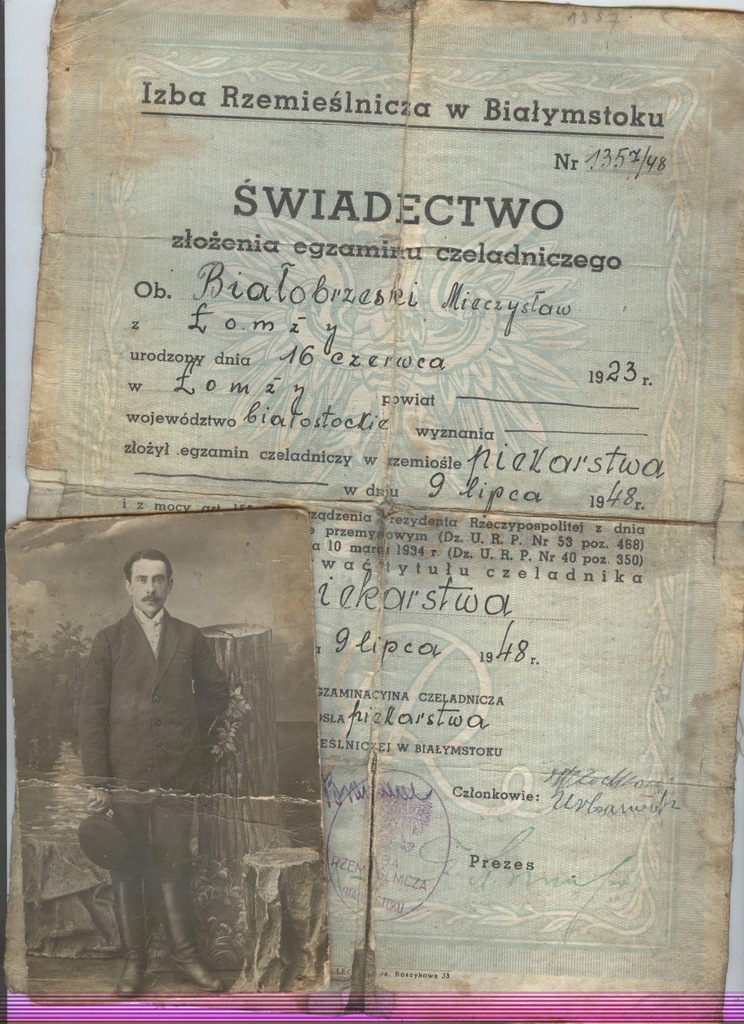 1357
Izba Rzemieślnicza w Białymstoku
Nr 1357/48
ŚWIADECTWO
złożenia egzaminu czeladniczego
Ob. Białobrzeski Mieczysław
z Łomży
urodzony dnia 16 czerwca 1923 r.
w Łomży powiat
województwo białostockie wyznania
złożył egzamin czeladniczy w rzemiośle piekarstwa
w dniu 9 lipca 1948 r.
i z mocy art. Prezydenta Rzeczypospolitej z dnia
przemysłowym (Dz. U. R. P. Nr 53 poz. 468)
10 marca 1934 r. (Dz. U. R. P. Nr 40 poz. 350)
tytułu czeladnika
iekarstwa
9 lipca 1948 r.
GZAMINACYJNA CZELADNICZA
OSŁA piekarstwa
EŚLNICZEJ W BIAŁYMSTOKU
Członkowie:
RZEMIEŚLNICZA
Prezes
Koszykowa 33